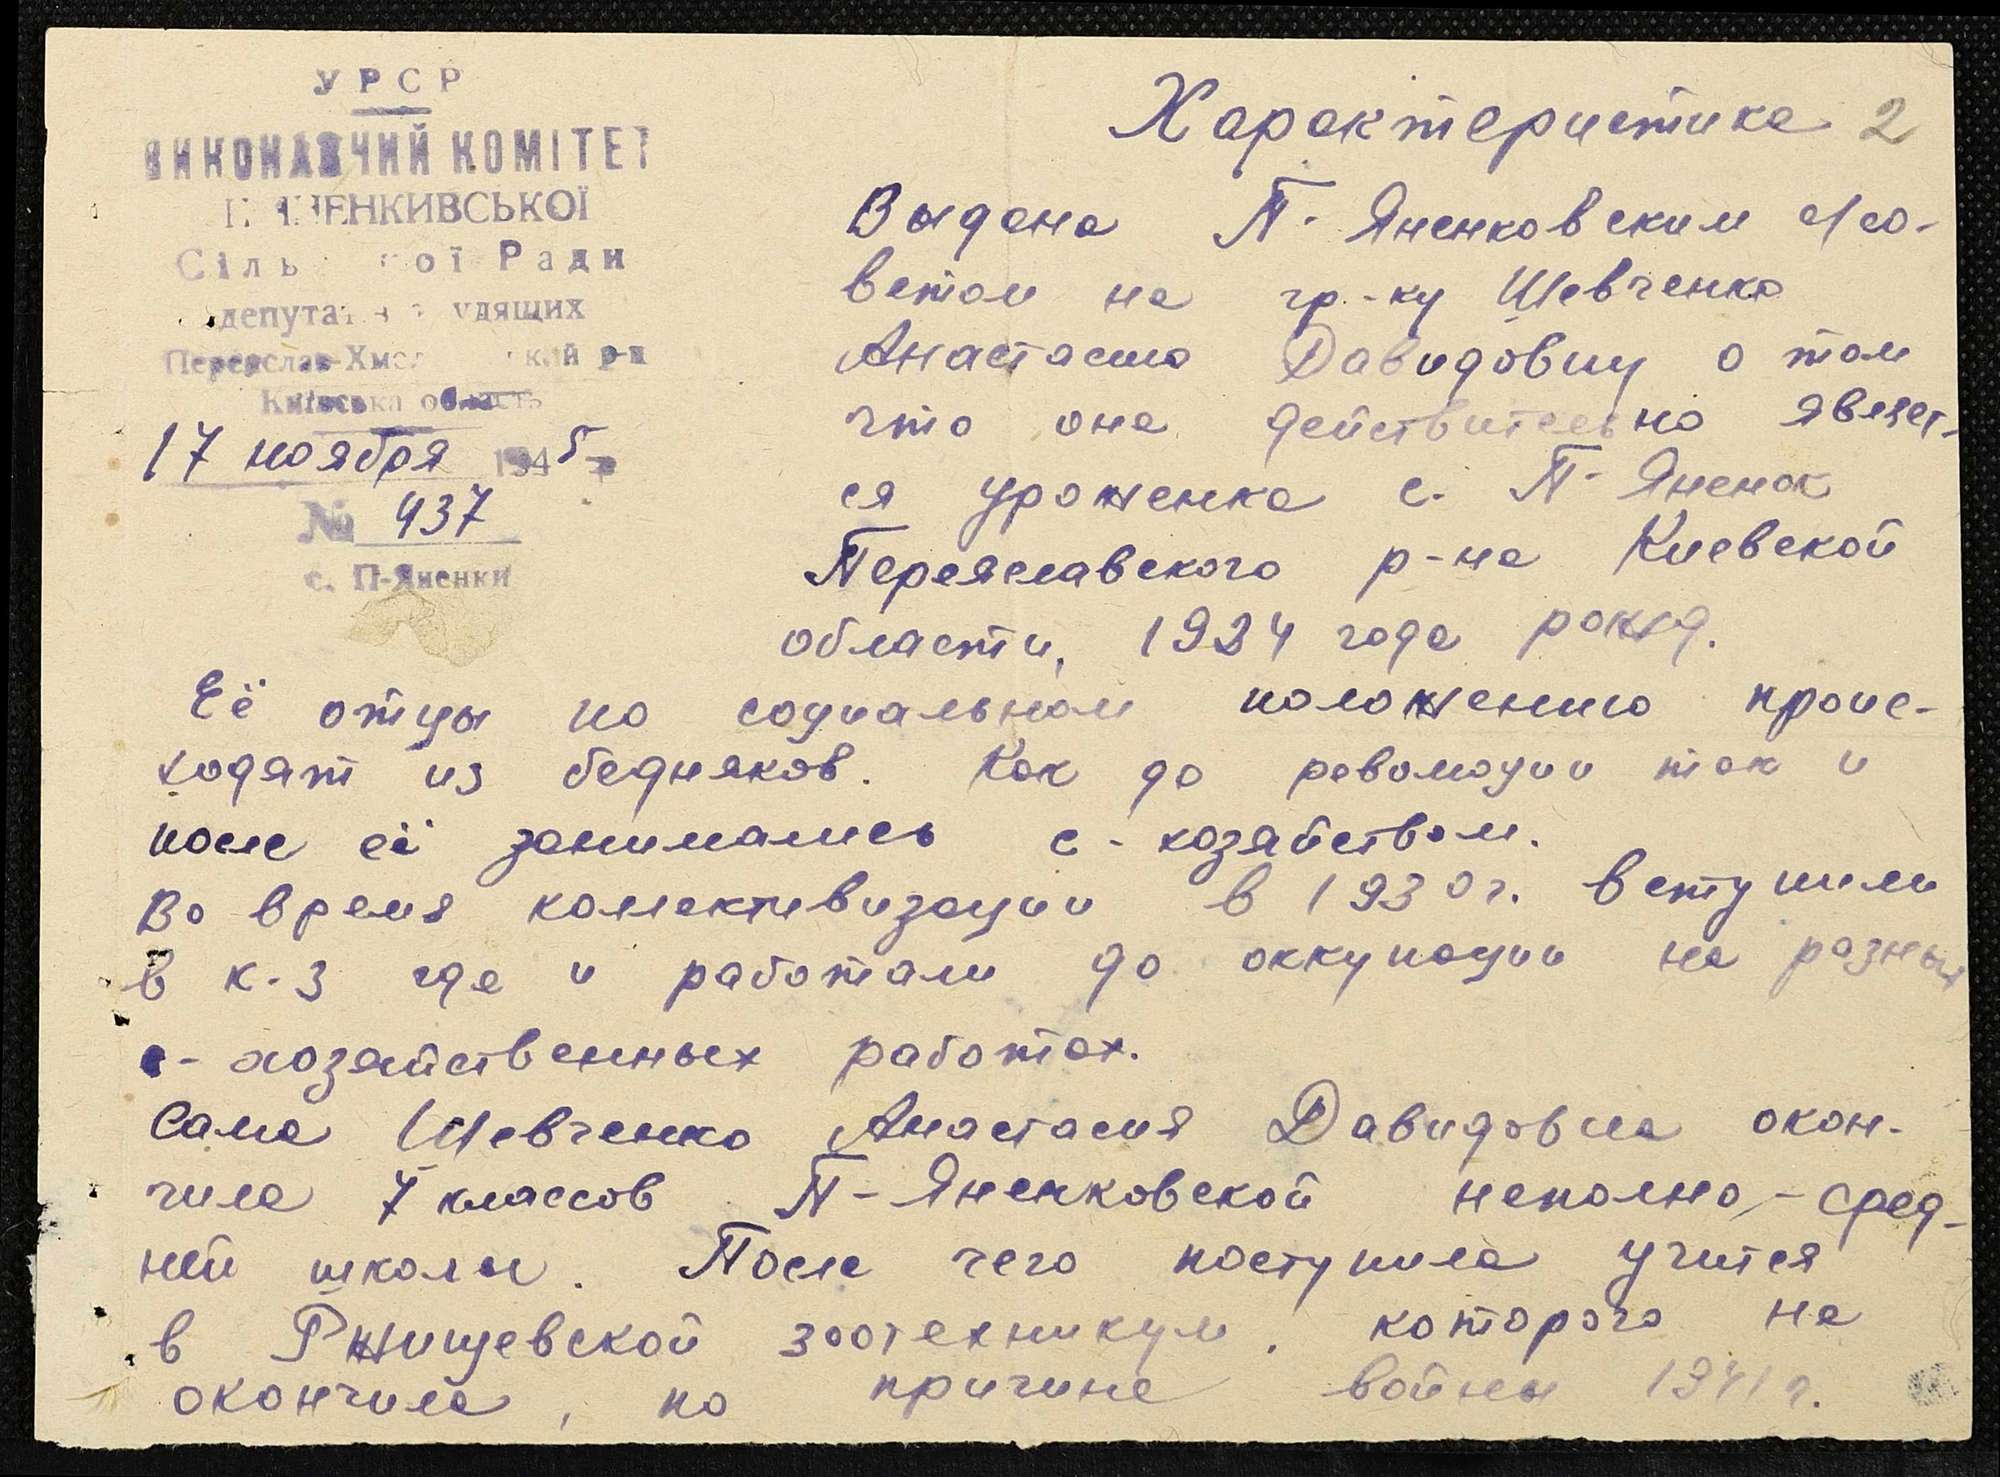 УРСР
ВИКОНАВЧИЙ КОМІТЕТ
Сіль ої Ради
Киівська область
17 ноября 1945 р
№ 437
с. П-Яненки
Характеристика 2
Выдана П-Яненковским с/со-
ветом на гр-ку Шевченко
Анастасию Давидовну о том
что она действительно являет-
ся уроженка с. П-Яненок
Переяславского р-на Киевской
области, 1924 года рожд.
Её отцы по социальном положению проис-
ходят из бедняков. Как до революции так и
после её занимались с-хозяйством.
Во время коллективизации в 1930 г. вступили
в к-з где и работали до оккупации на разных
с-хозяйственных работах.
Сама Шевченко Анастасия Давидовна окон-
чила 7 классов П-Яненковской неполно-сред-
ней школы. После чего поступила учится
в Ржищевской зоотехникум, которого не
окончила, по причине войны 1941 г.